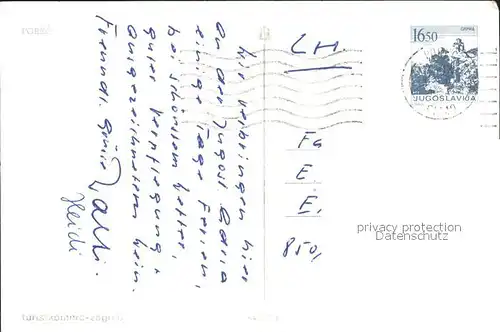 POREČ
Wir verbringen hier
an der Jugosl. Adria
einige Tage Ferien,
bei schönstem Wetter,
guter Verpflegung +
ausgezeichnetem Wein.
Freundl. Grüsse
Heidi
CH.
Fa
E.
E.
850,
16.50
JUGOSLAVIJA
privacy protection
Datenschutz